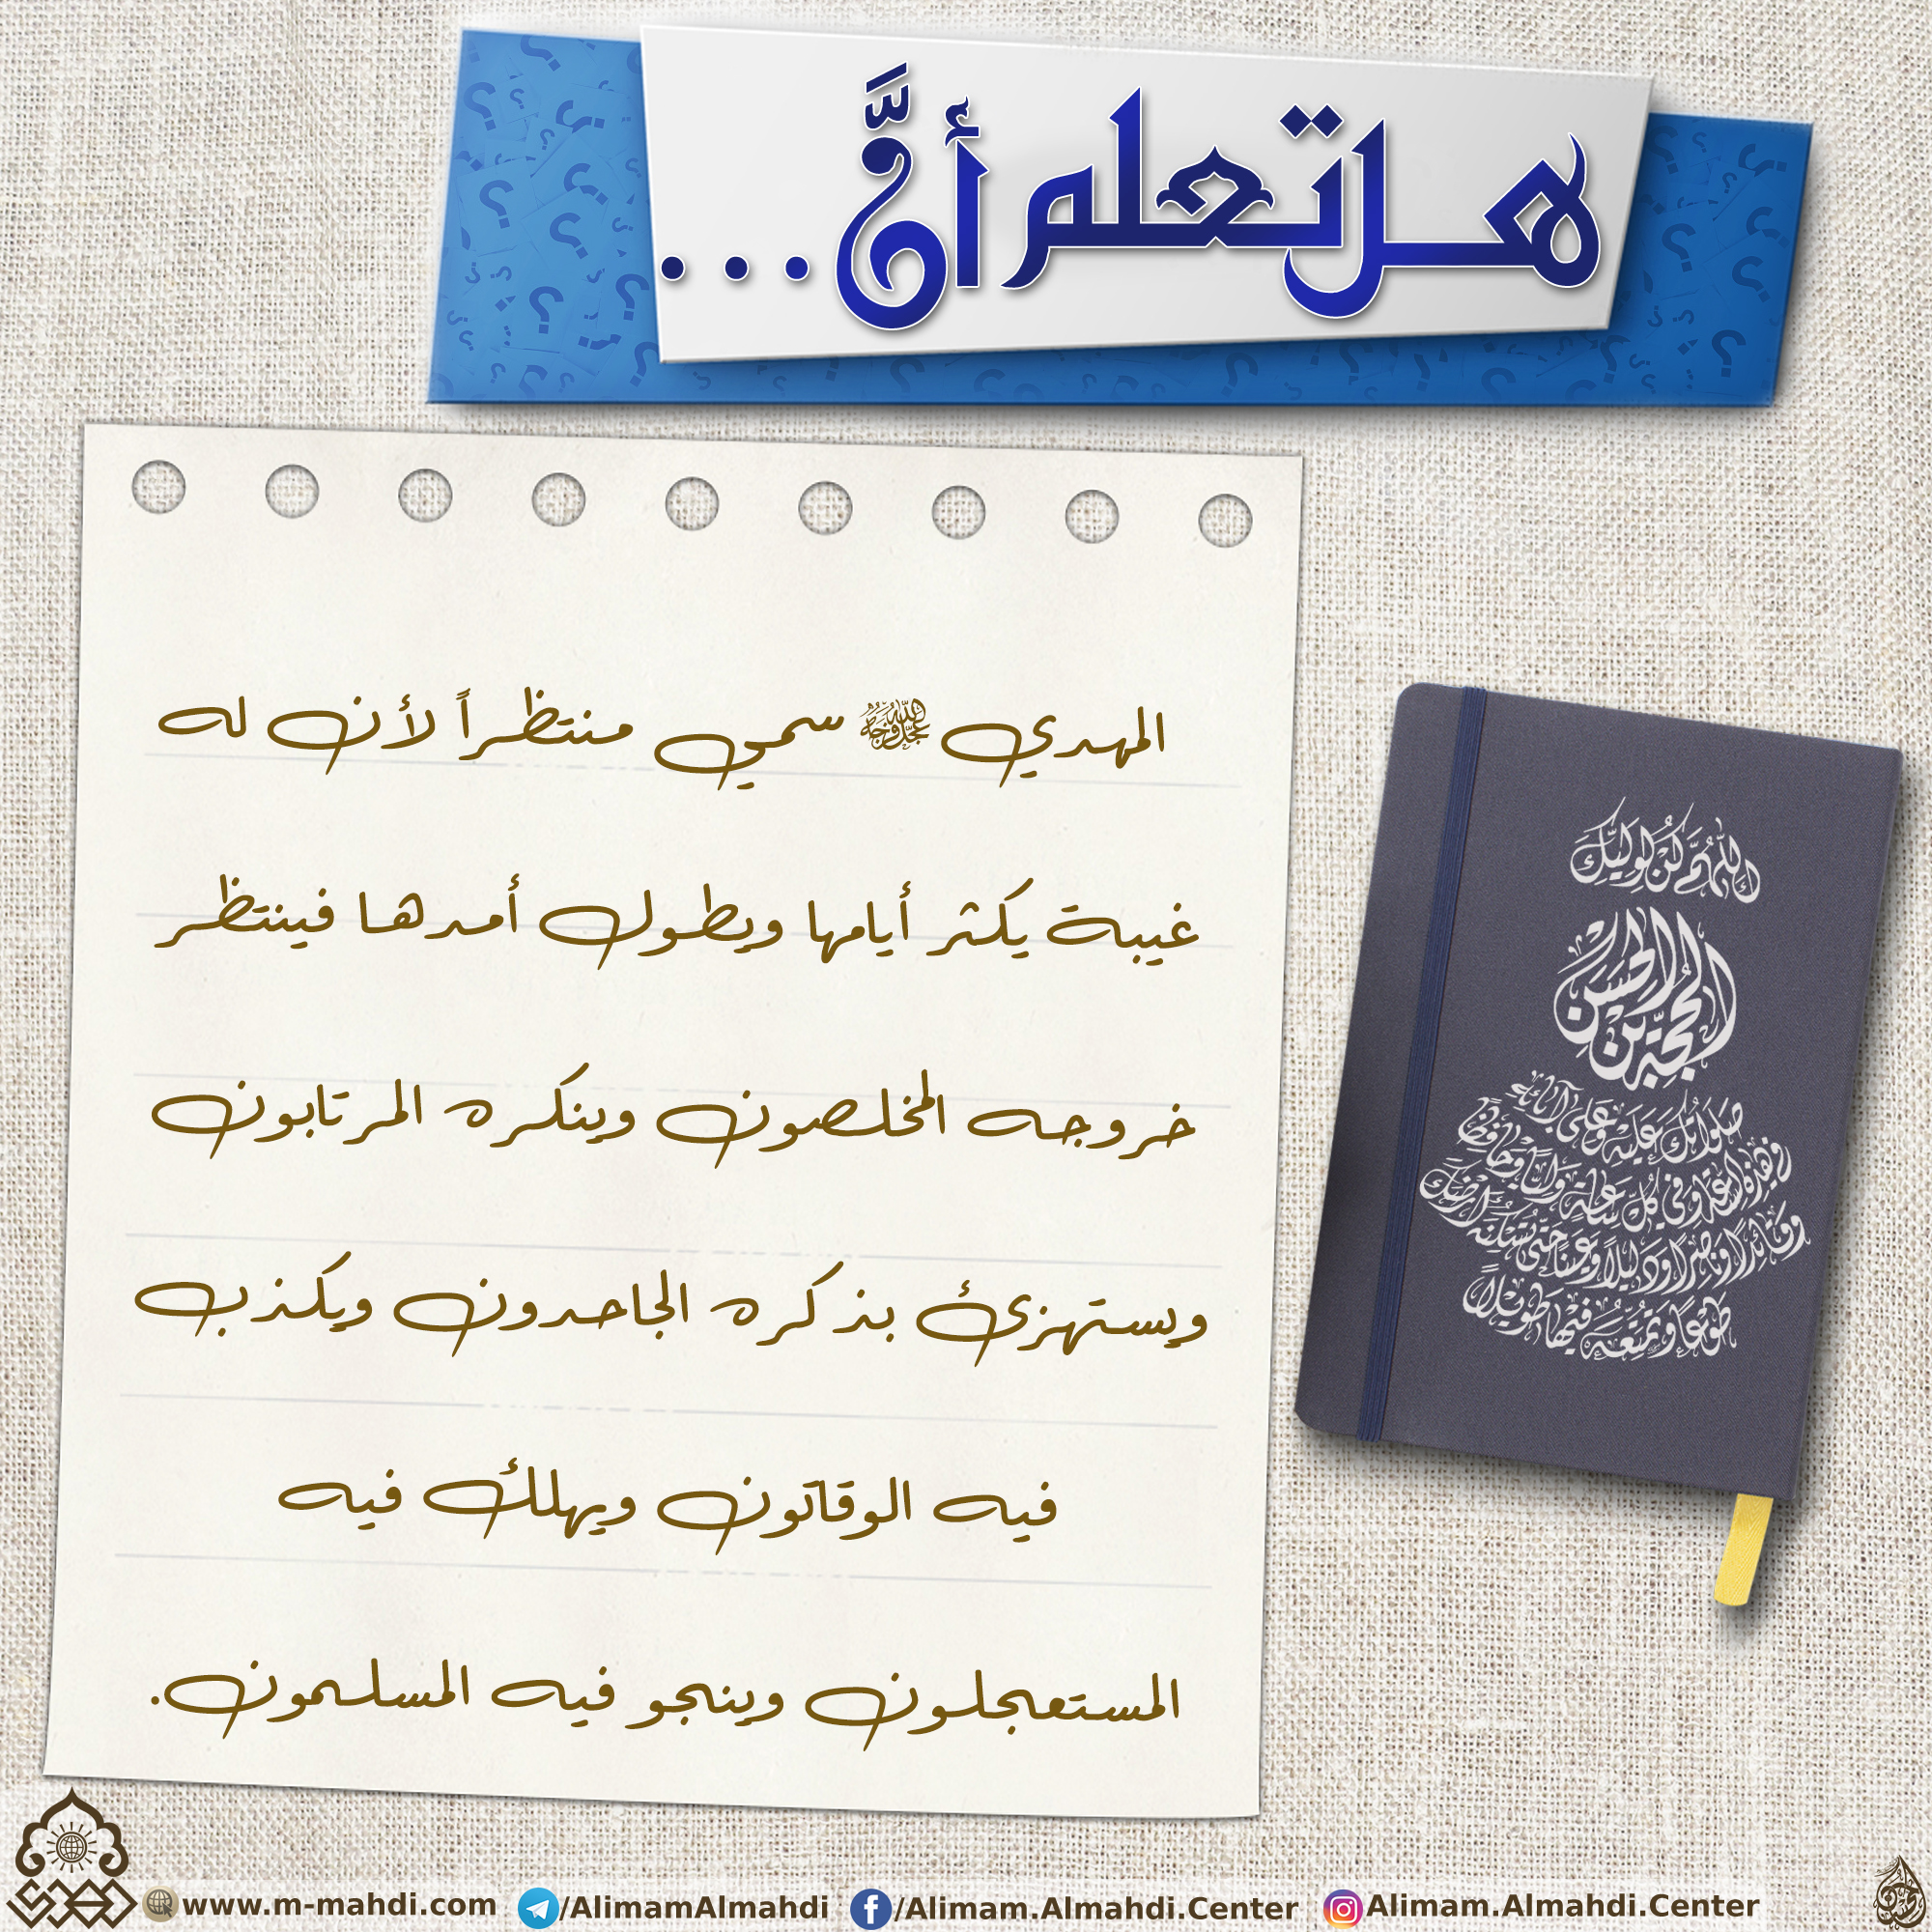 هل تعلم أنَّ...
المهدي عجل الله فرجه سمي منتظراً لأن له
غيبة يكثر أيامها ويطول أمدها فينتظر
خروجه المخلصون وينكره المرتابون
ويستهزئ بذكره الجاحدون ويكذب
فيه الوقاتون ويهلك فيه
المستعجلون وينجو فيه المسلمون.
اللَّهُمَّ كُنْ لِوَلِيِّكَ
الحُجَّةِ بْنِ الحَسَنِ
صَلَوَاتُكَ عَلَيْهِ وَعَلَى آبَائِهِ
فِي هَذِهِ السَّاعَةِ وَفِي كُلِّ سَاعَةٍ وَلِيًّا وَحَافِظًا
وَقَائِدًا وَنَاصِرًا وَدَلِيلًا وَعَيْنًا حَتَّى تُسْكِنَهُ أَرْضَكَ
طَوْعًا وَتُمَتِّعَهُ فِيهَا طَوِيلًا
www.m-mahdi.com /AlimamAlmahdi /Alimam.Almahdi.Center Alimam.Almahdi.Center